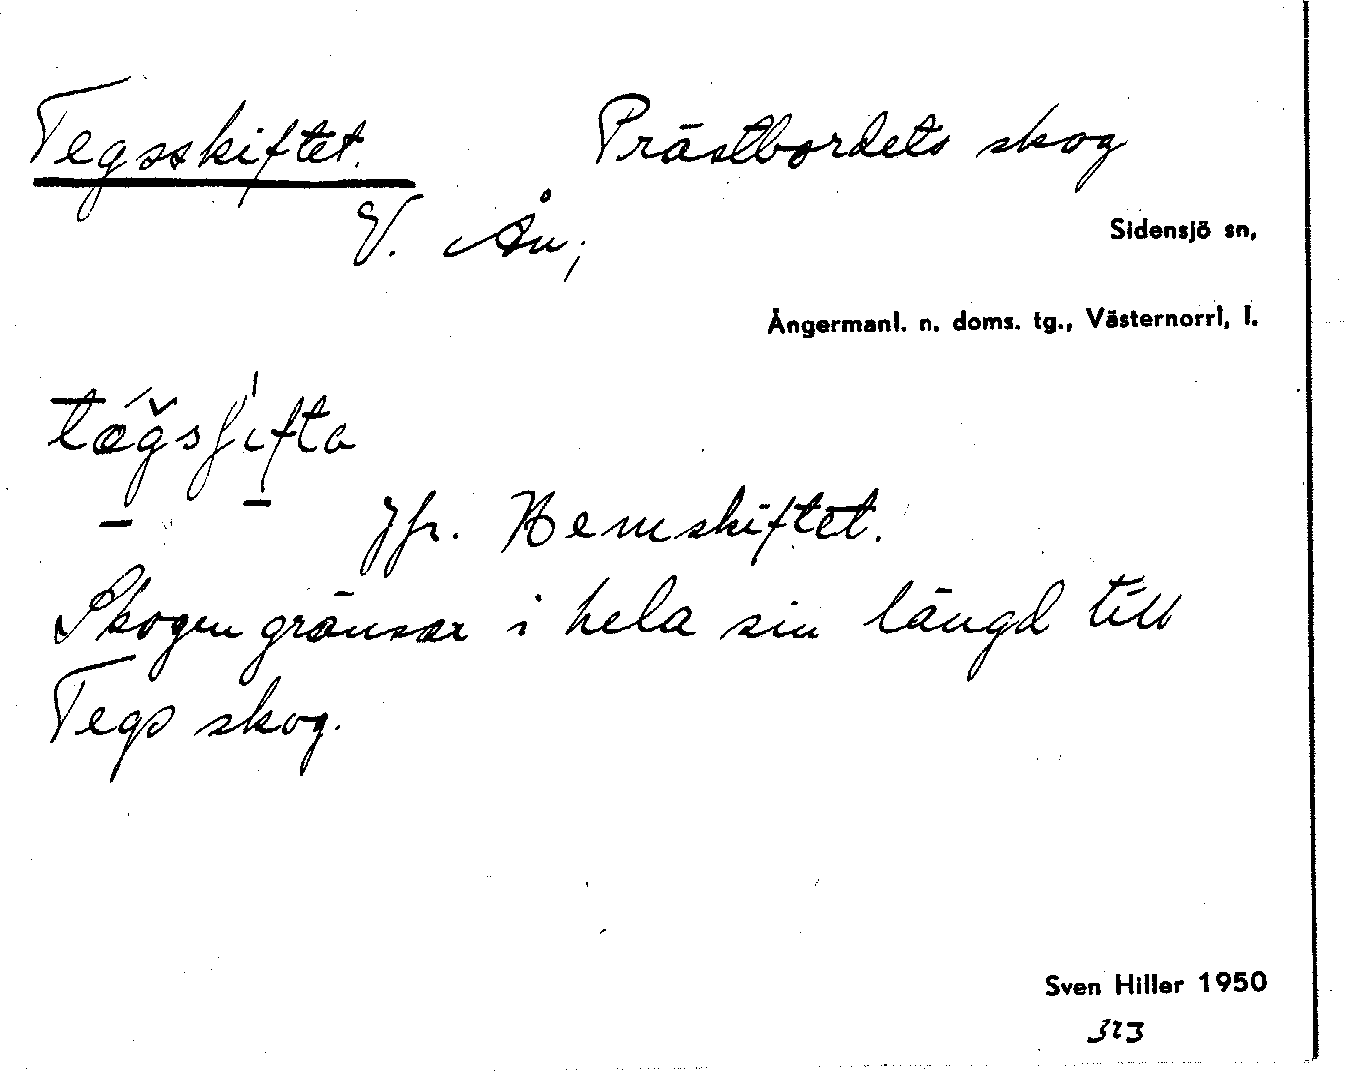 Tegsskiftet. Prästbordets skog
V. Ån;
Sidensjö sn,
Ångermanl. n. doms. tg., Västernorrl, l.
Jfr. Hemskiftet.
Skogen gränsar i hela sin längd till
Tegs skog.
Sven Hiller 1950
323